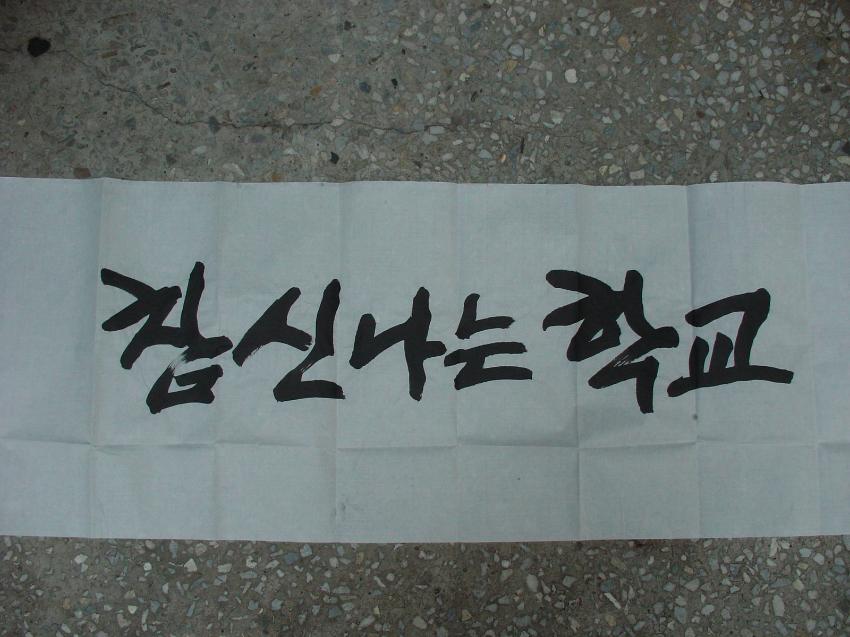 참 신나는 학교